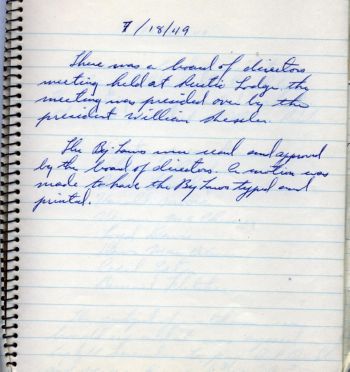 7/18/49
There was a board of directors
meeting held at Rustic Lodge. the
meeting was presided over by the
president William
The By Laws were read and approved
by the board of directors. A motion was
made to have the By Laws typed and
printed.